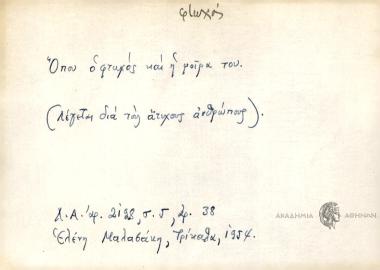 φτωχός
Ὅπου ὁ φτωχός καί ἡ μοῖρα του.
(Λέγεται διά τούς ἄτυχους ἀνθρώπους).
Λ.Α. ἀρ. 2198, σ. 5, ἀρ. 38
Ἑλένη Μαλασάκη, Τρίκαλα, 1954.
ΑΚΑΔΗΜΙΑ ΑΘΗΝΩΝ